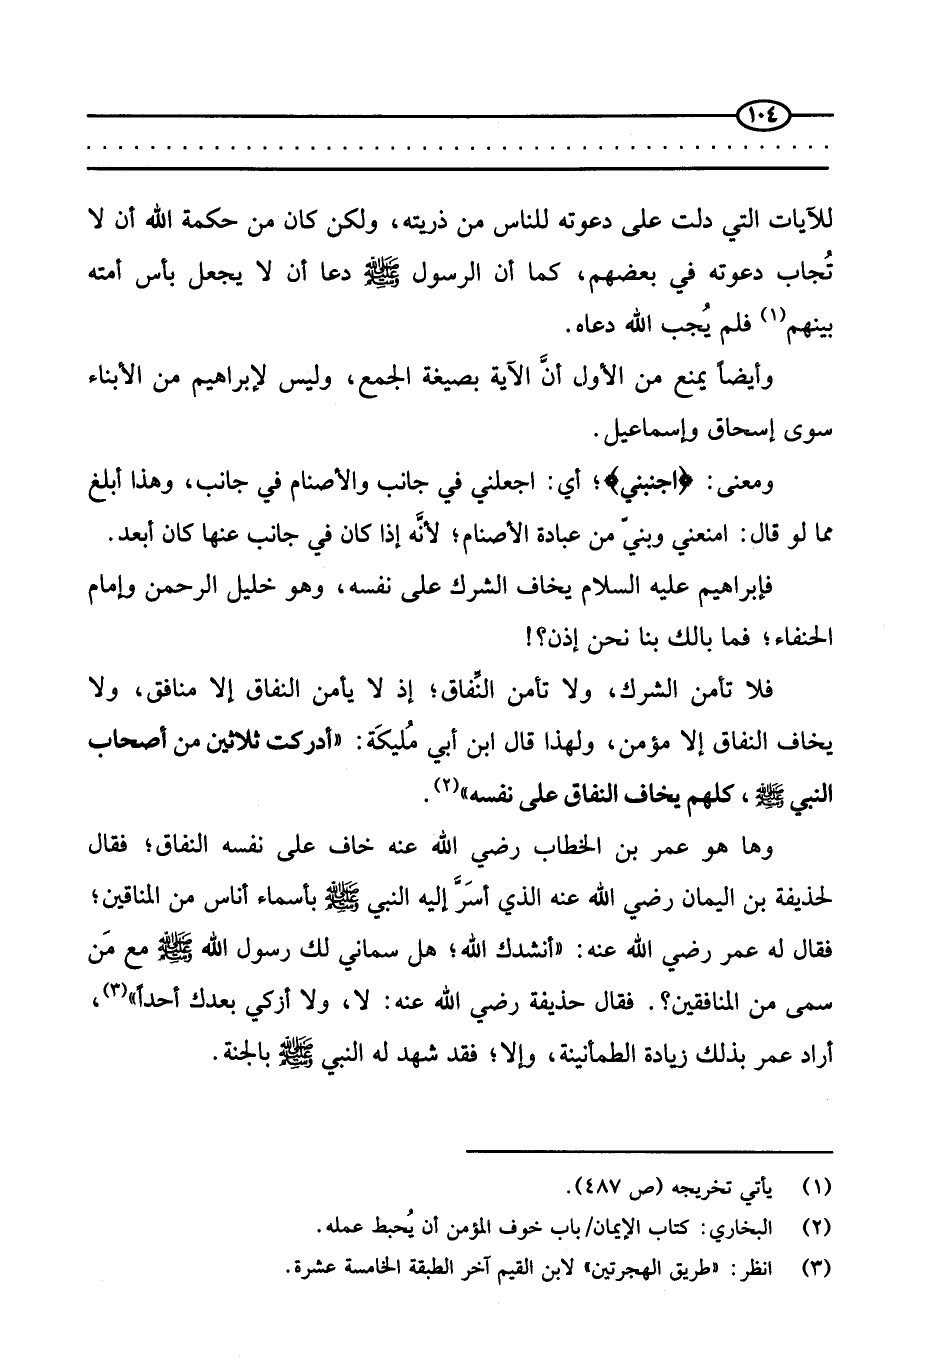 ١٠٤
للآيات التي دلت على دعوته للناس من ذريته، ولكن كان من حكمة الله أن لا
تُجاب دعوته في بعضهم، كما أن الرسول ﷺ دعا أن لا يجعل بأس أمته
بينهم(١) فلم يُجب الله دعاه.
وأيضاً يمنع من الأول أنَّ الآية بصيغة الجمع، وليس لإبراهيم من الأبناء
سوى إسحاق وإسماعيل.
ومعنى: ﴿اجنبني﴾؛ أي: اجعلني في جانب والأصنام في جانب، وهذا أبلغ
مما لو قال: امنعني وبنيّ من عبادة الأصنام؛ لأنَّه إذا كان في جانب عنها كان أبعد.
فإبراهيم عليه السلام يخاف الشرك على نفسه، وهو خليل الرحمن وإمام
الحنفاء؛ فما بالك بنا نحن إذن؟!
فلا تأمن الشرك، ولا تأمن النِّفاق؛ إذ لا يأمن النفاق إلا منافق، ولا
يخاف النفاق إلا مؤمن، ولهذا قال ابن أبي مُليكَة: «أدركت ثلاثين من أصحاب
النبي ﷺ، كلهم يخاف النفاق على نفسه»(٢).
وها هو عمر بن الخطاب رضي الله عنه خاف على نفسه النفاق؛ فقال
لحذيفة بن اليمان رضي الله عنه الذي أسَرَّ إليه النبي ﷺ بأسماء أناس من المناقين؛
فقال له عمر رضي الله عنه: «أنشدك الله؛ هل سماني لك رسول الله ﷺ مع مَن
سمى من المنافقين؟. فقال حذيفة رضي الله عنه: لا، ولا أزكي بعدك أحداً»(٣)،
أراد عمر بذلك زيادة الطمأنينة، وإلا؛ فقد شهد له النبي ﷺ بالجنة.
(١) يأتي تخريجه (ص ٤٨٧).
(٢) البخاري: كتاب الإيمان/ باب خوف المؤمن أن يُحبط عمله.
(٣) انظر: «طريق الهجرتين» لابن القيم آخر الطبقة الخامسة عشرة.